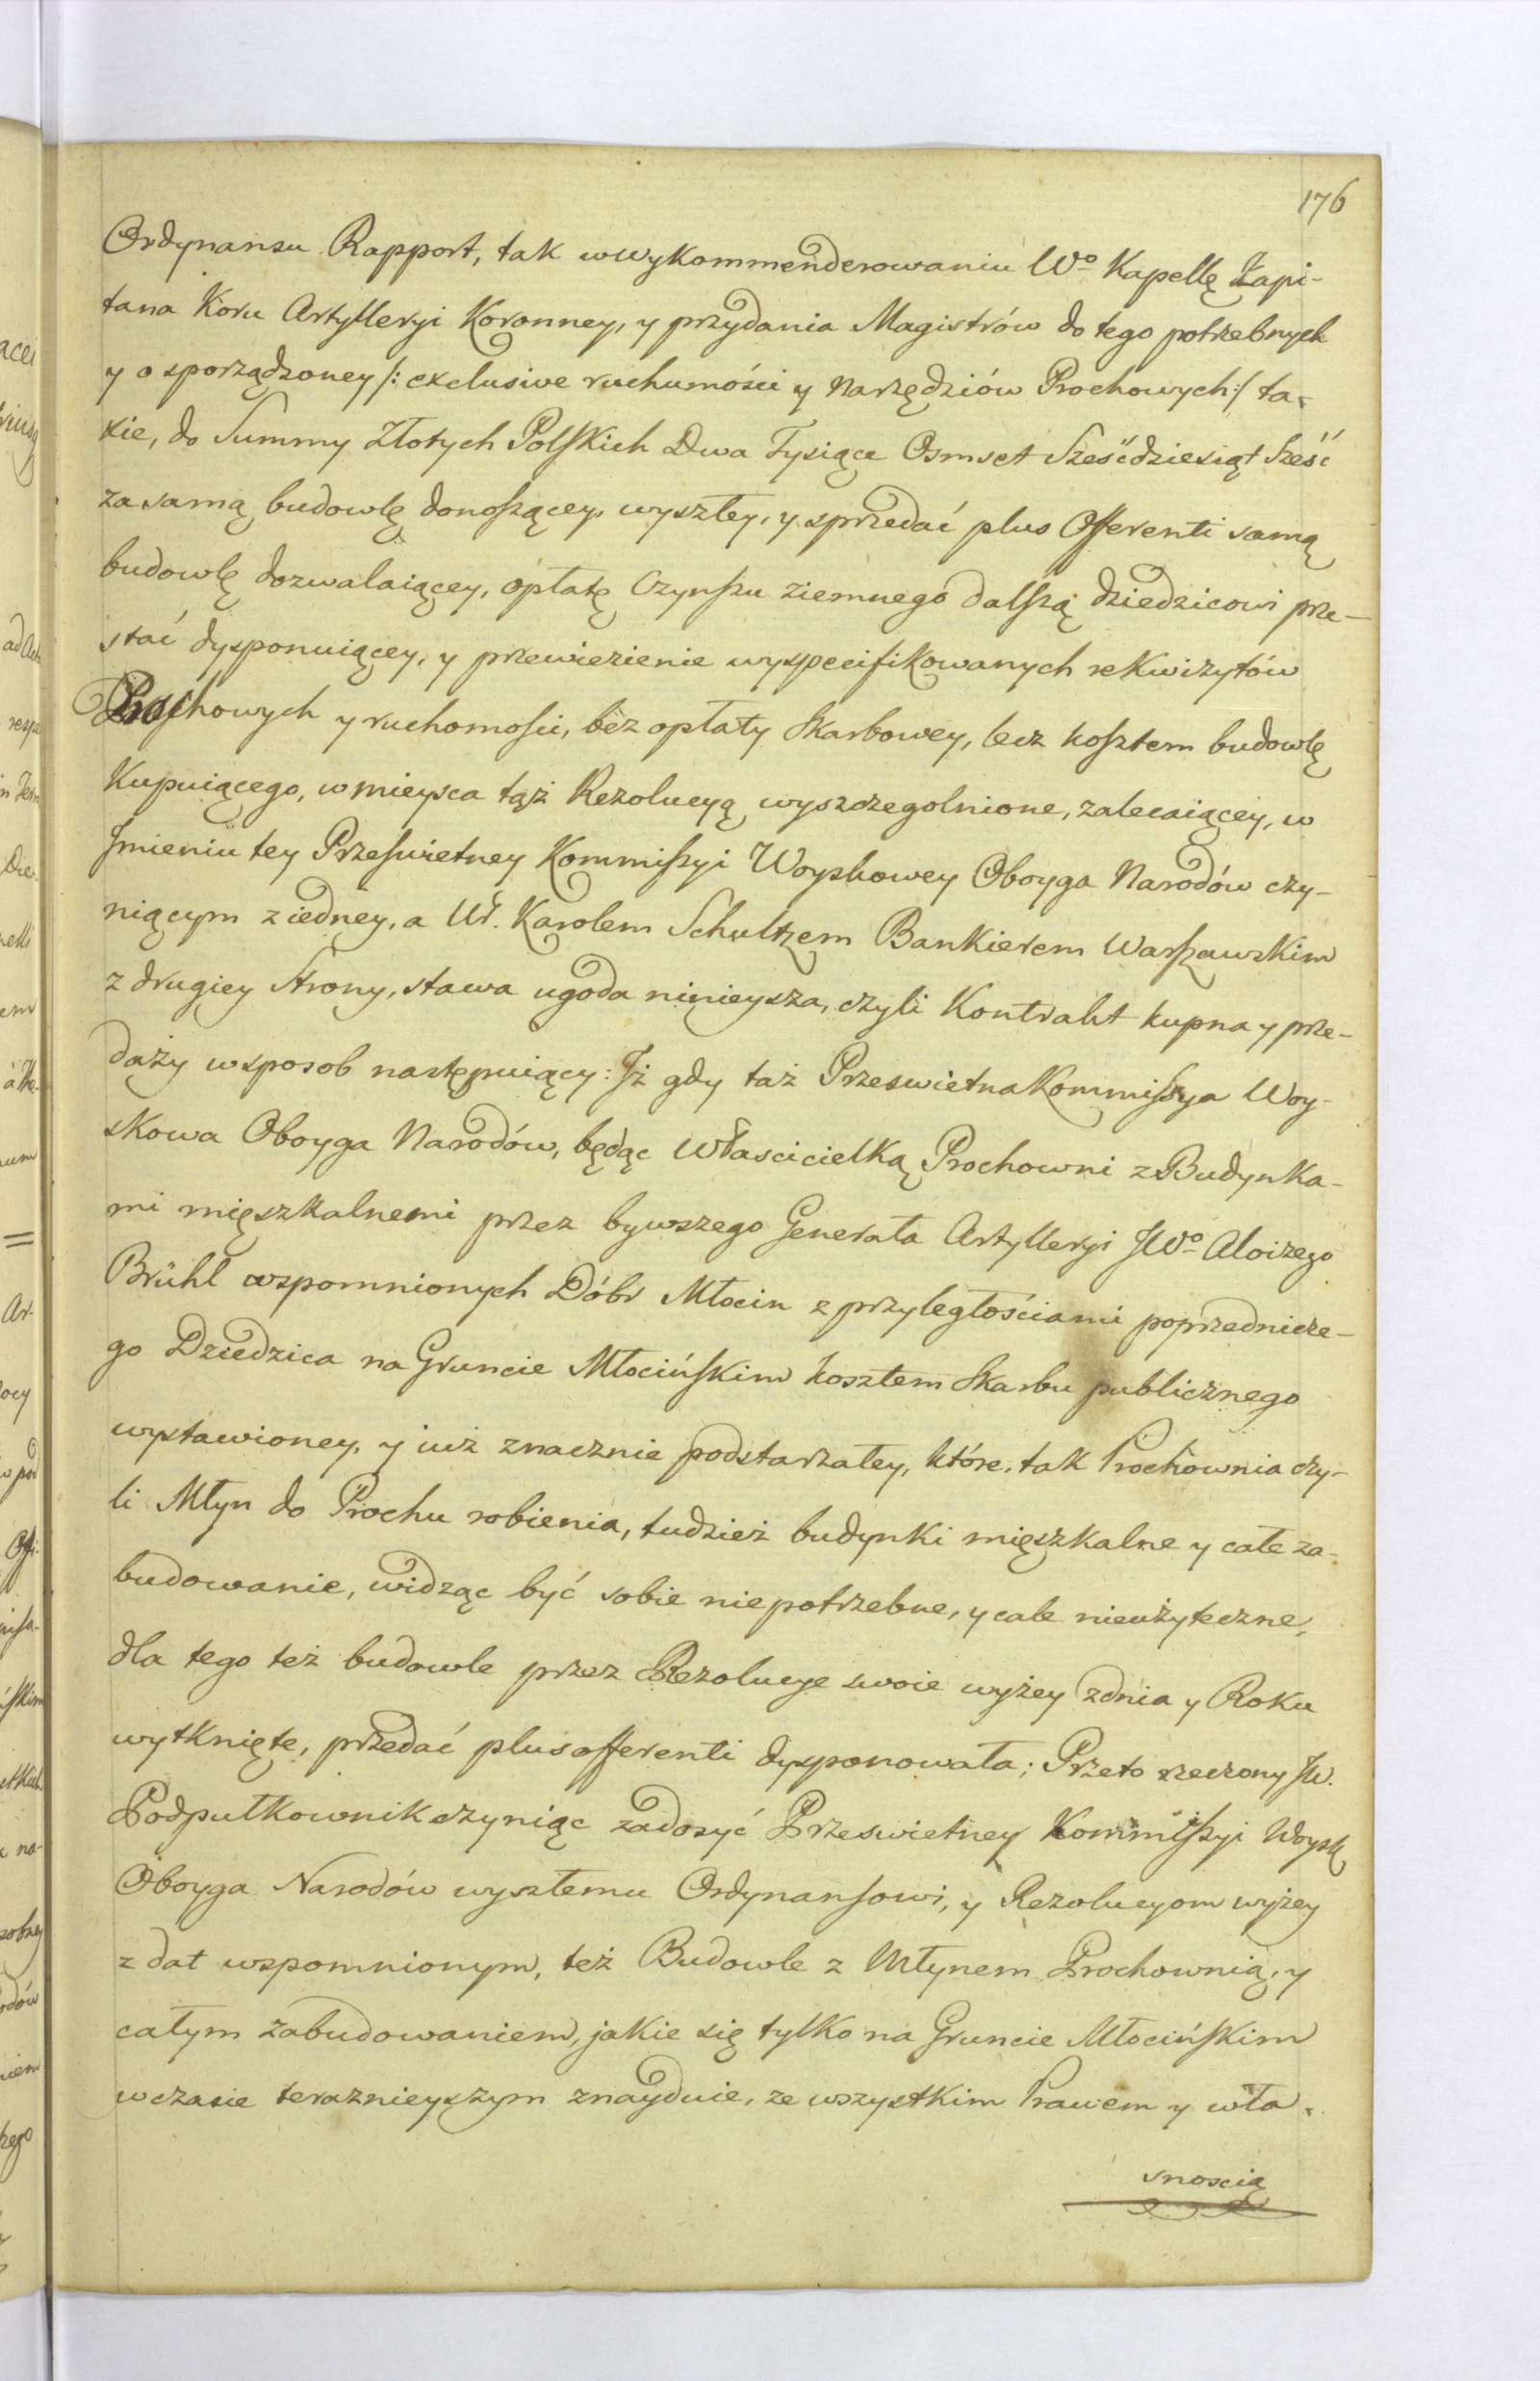 176
Ordynansu Rapport, tak w wykommenderowaniu Wo Kapellę Kapi-
tana Koru Artylleryi Koronney, y przydania Magistrów do tego potrzebnych
y o sporządzoney /: exclusive ruchumości y Narzędziów Prochowych :/ ta-
xie, do Summy Złotych Polskich Dwa Tysiące Osmset Sześćdziesiąt Sześć
za samą budowlę donoszącey, wyszłey, y sprzedać plus Offerenti samą
budowlę dozwalaiącey, opłatę Czynszu ziemnego dalszą dziedzicowi prze-
stać dysponuiącey, y przewiezienie wyspecifikowanych rekwizytów
Prochowych y ruchomości, bez opłaty Skarbowey, lecz kosztem budowlę
Kupuiącego, w mieysca tąż Rezolucyą wyszczegolnione, zalecaiącey, w
Jmieniu tey Przeswietney Kommissyi Woyskowey Oboyga Narodów czy-
niącym z iedney, a Uł. Karolem Schultzem Bankierem Warszawskim
z drugiey Strony, stawa ugoda ninieysza, czyli Kontrakt kupna y prze-
daży w sposob następuiący: Jż gdy taż Przeswietna Kommissya Woy-
skowa Oboyga Narodów, będąc Włascicielką Prochowni z Budynka-
mi mięszkalnemi przez bywszego Generała Artylleryi JWo Aloizego
Brühl wspomnionych Dóbr Młocin z przyległościami poprzednicze-
go Dziedzica na Gruncie Młocińskim kosztem Skarbu publicznego
wystawioney, y iuż znacznie podstarzałey, które, tak Prochownia czy-
li Młyn do Prochu robienia, tudzież budynki mięszkalne y całe za-
budowanie, widząc być sobie niepotrzebne, y cale nieużyteczne,
dla tego też budowle przez Rezolucye swoie wyżey z dnia y Roku
wytknięte, przedać plus offerenti dysponowała; Przeto rzeczony JW.
Podpułkownik czyniąc zadosyć Przeswietney Kommissyi Woysk
Oboyga Narodów wyszłemu Ordynansowi, y Rezolucyom wyżey
z dat wspomnionym, też Budowle z Młynem Prochownią, y
całym zabudowaniem, jakie się tylko na Gruncie Młocińskim
w czasie teraznieyszym znayduie, ze wszystkim Prawem y wła-
snoscią